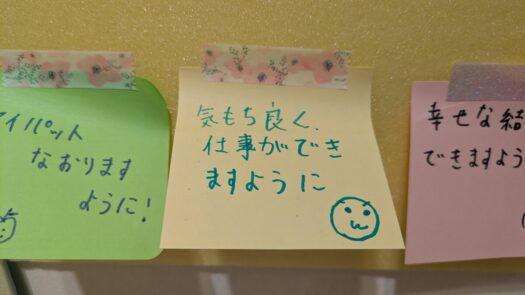 イパット
なおります
ように!
気もち良く、
仕事ができ
ますように
幸せな結
できますよう